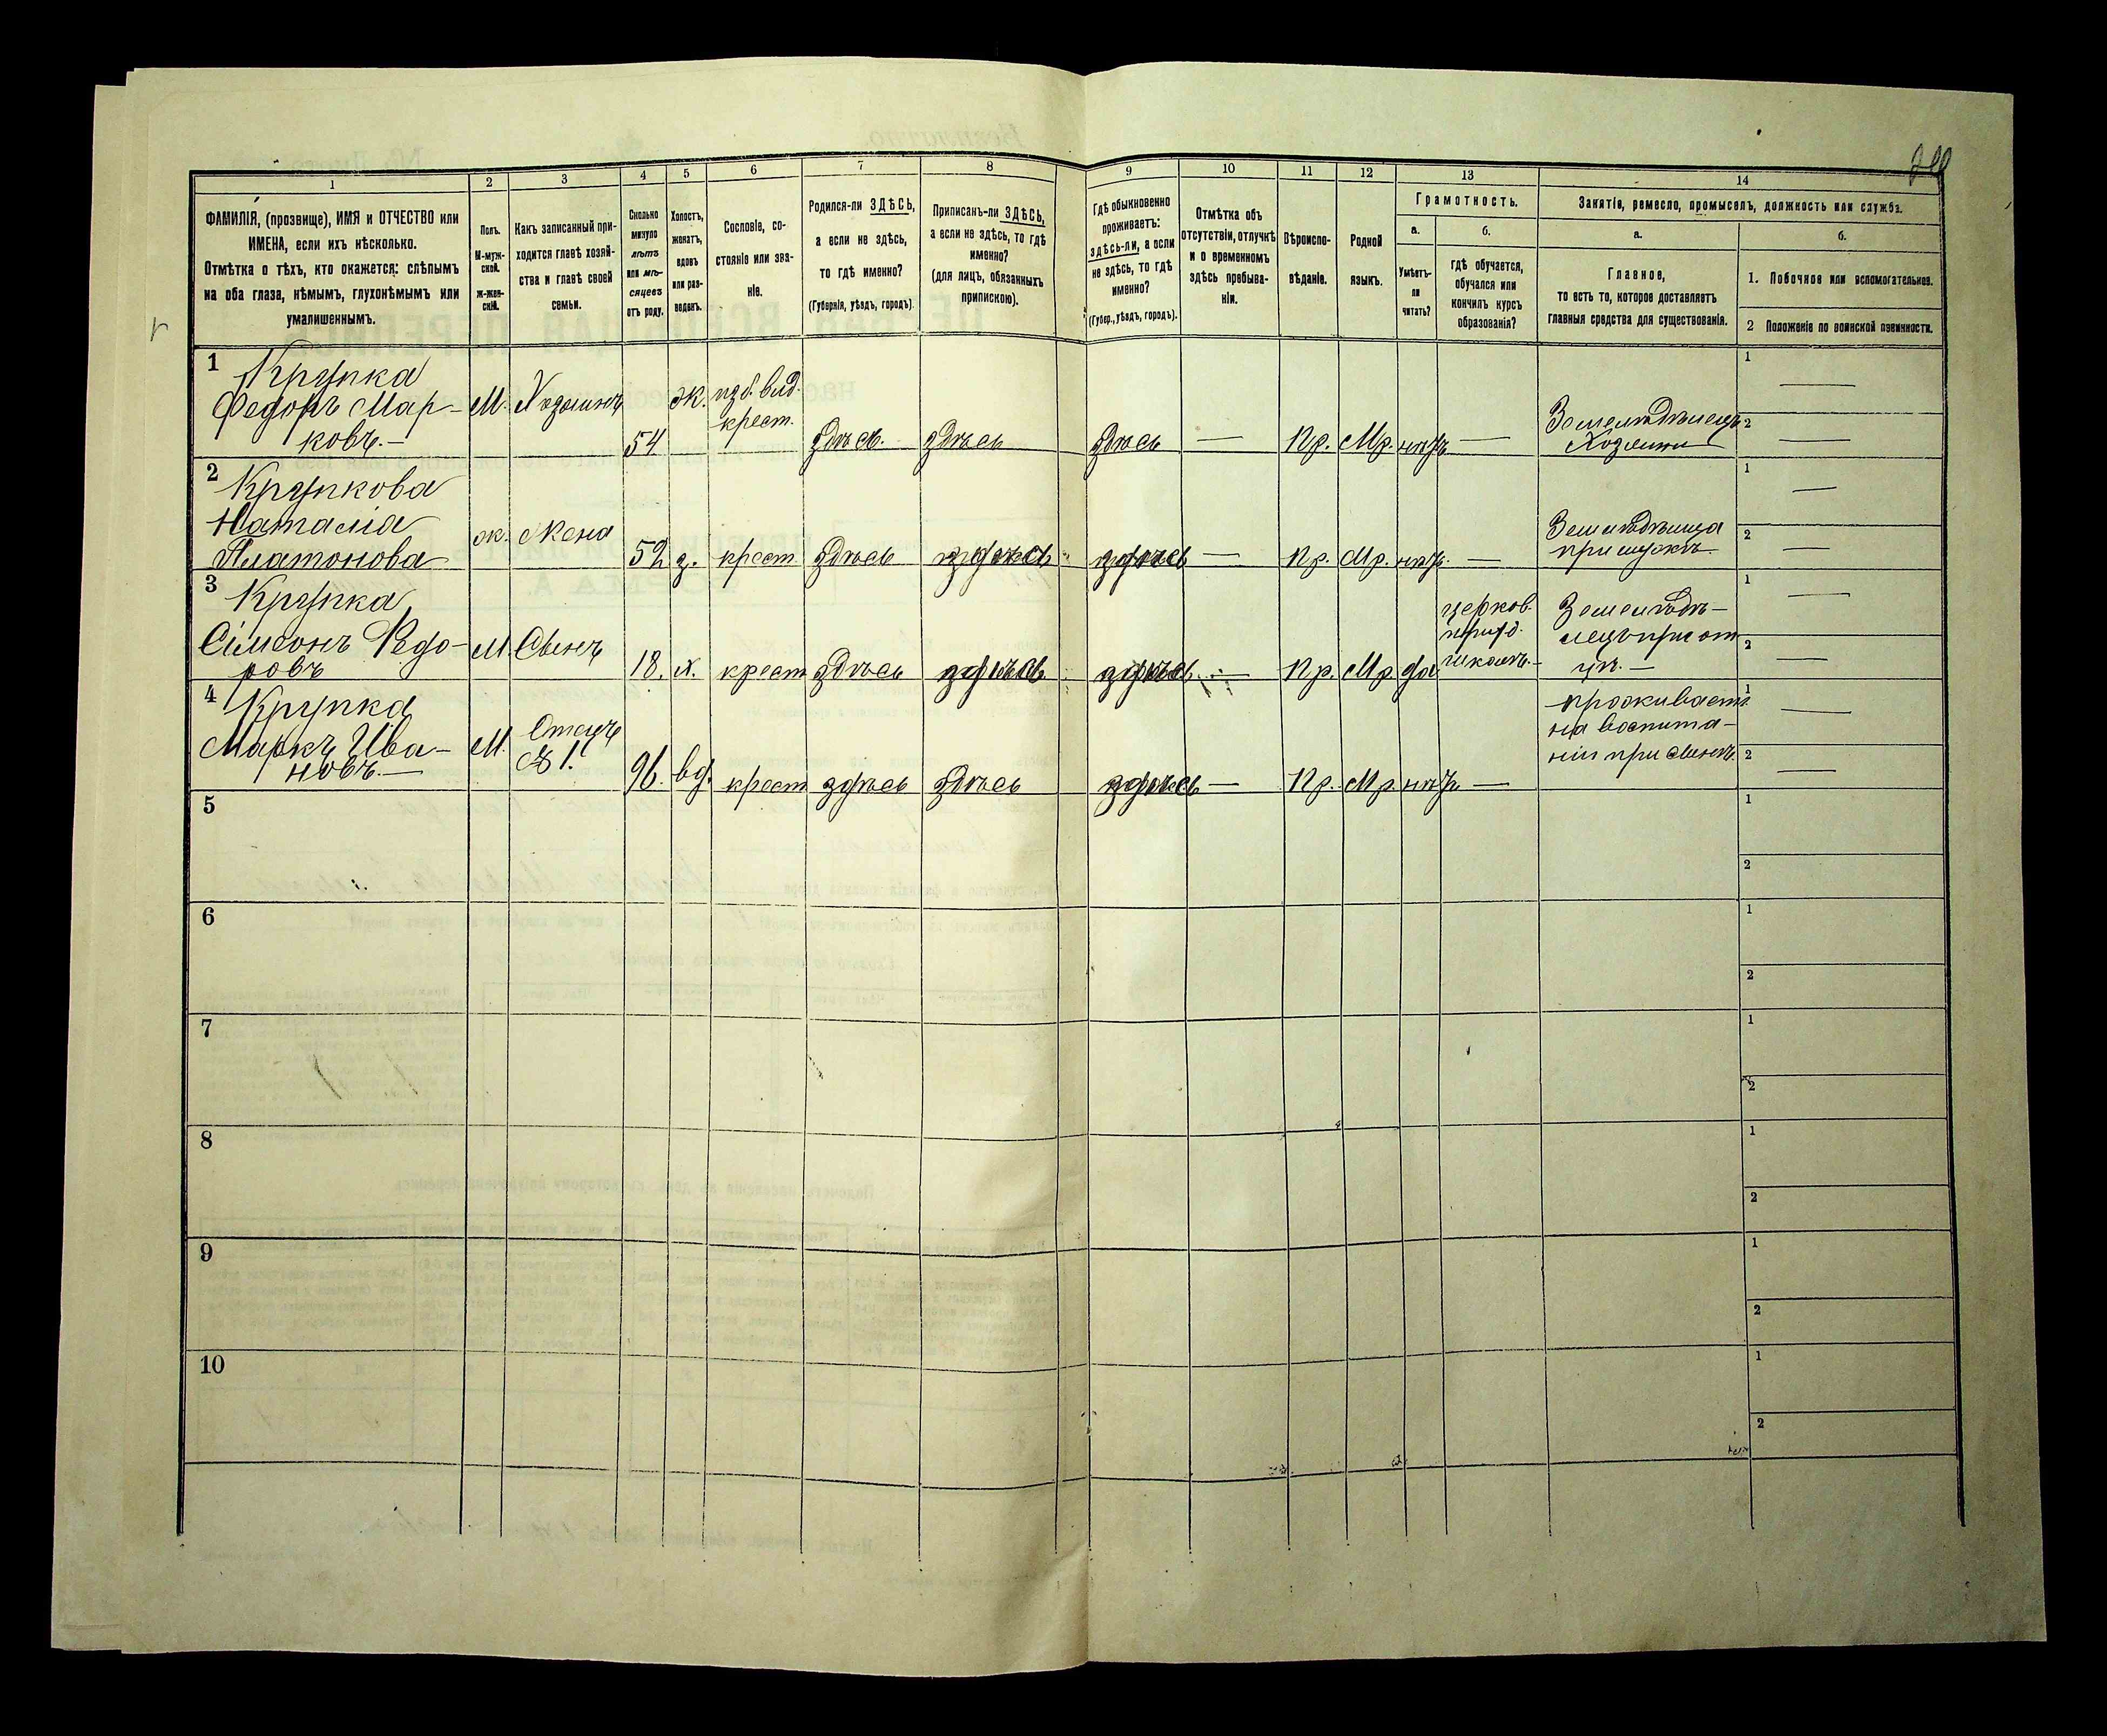 1
2
3
4
5
6
7
8
9
10
11
12
13
14
ФАМИЛІЯ, (прозвище), ИМЯ и ОТЧЕСТВО или
ИМЕНА, если ихъ нѣсколько.
Отмѣтка о тѣхъ, кто окажется: слѣпымъ
на оба глаза, нѣмымъ, глухонѣмымъ или
умалишеннымъ.
Полъ.
М-муж-
ской.
Ж-жен-
скій.
Какъ записанный при-
ходится главѣ хозяй-
ства и главѣ своей
семьи.
Сколько
минуло
лѣтъ
или мѣ-
сяцевъ
отъ роду.
Холостъ,
женатъ,
вдовъ
или раз-
веденъ.
Сословіе, со-
стояніе или зва-
ніе.
Родился-ли ЗДѢСЬ,
а если не здѣсь,
то гдѣ именно?
(Губернія, уѣздъ, городъ).
Приписанъ-ли ЗДѢСЬ,
а если не здѣсь, то гдѣ
именно?
(для лицъ, обязанныхъ
припискою).
Гдѣ обыкновенно
проживаетъ:
здѣсь-ли, а если
не здѣсь, то гдѣ
именно?
(Губер., уѣздъ, городъ).
Отмѣтка объ
отсутствіи, отлучкѣ
и о временномъ
здѣсь пребыва-
ніи.
Вѣроиспо-
вѣданіе.
Родной
языкъ.
Грамотность.
а.
Умѣетъ-
ли
читать?
б.
гдѣ обучается,
обучался или
кончилъ курсъ
образованія?
Занятіе, ремесло, промыселъ, должность или служба.
а.
Главное,
то есть то, которое доставляетъ
главныя средства для существованія.
б.
1. Побочное или вспомогательное.
2 Положеніе по воинской повинности.
1 Крупка
Федоръ Мар-
ковъ.—
М. Хозяинъ 54 ж.
крест.
здѣсь. здѣсь здѣсь — Пр. Мр. нѣтъ —
Земледѣлецъ
Хозяинъ
1 —
2 —
2 Крупкова
Наталія
Платонова
ж. Жена 52 з. крест здѣсь здѣсь здѣсь — Пр. Мр. нѣтъ. —
при мужѣ
1 —
2 —
3 Крупка
Сімеонъ Федо-
ровъ
М. Сынъ 18. х. крест здѣсь здѣсь здѣсь — Пр. Мр. да
церков.
приход.
Земледѣ-
лецъ при от-
цѣ. —
1 —
2 —
4 Крупка
Маркъ Ива-
новъ.—
М. Отецъ
№ 1.
96. вд. крест здѣсь здѣсь здѣсь — Пр. Мр. нѣтъ —
проживаетъ
на воспита-
ніи при сынѣ.
1 —
2 —
5
1
2
6
1
2
7
1
2
8
1
2
9
1
2
10
1
2